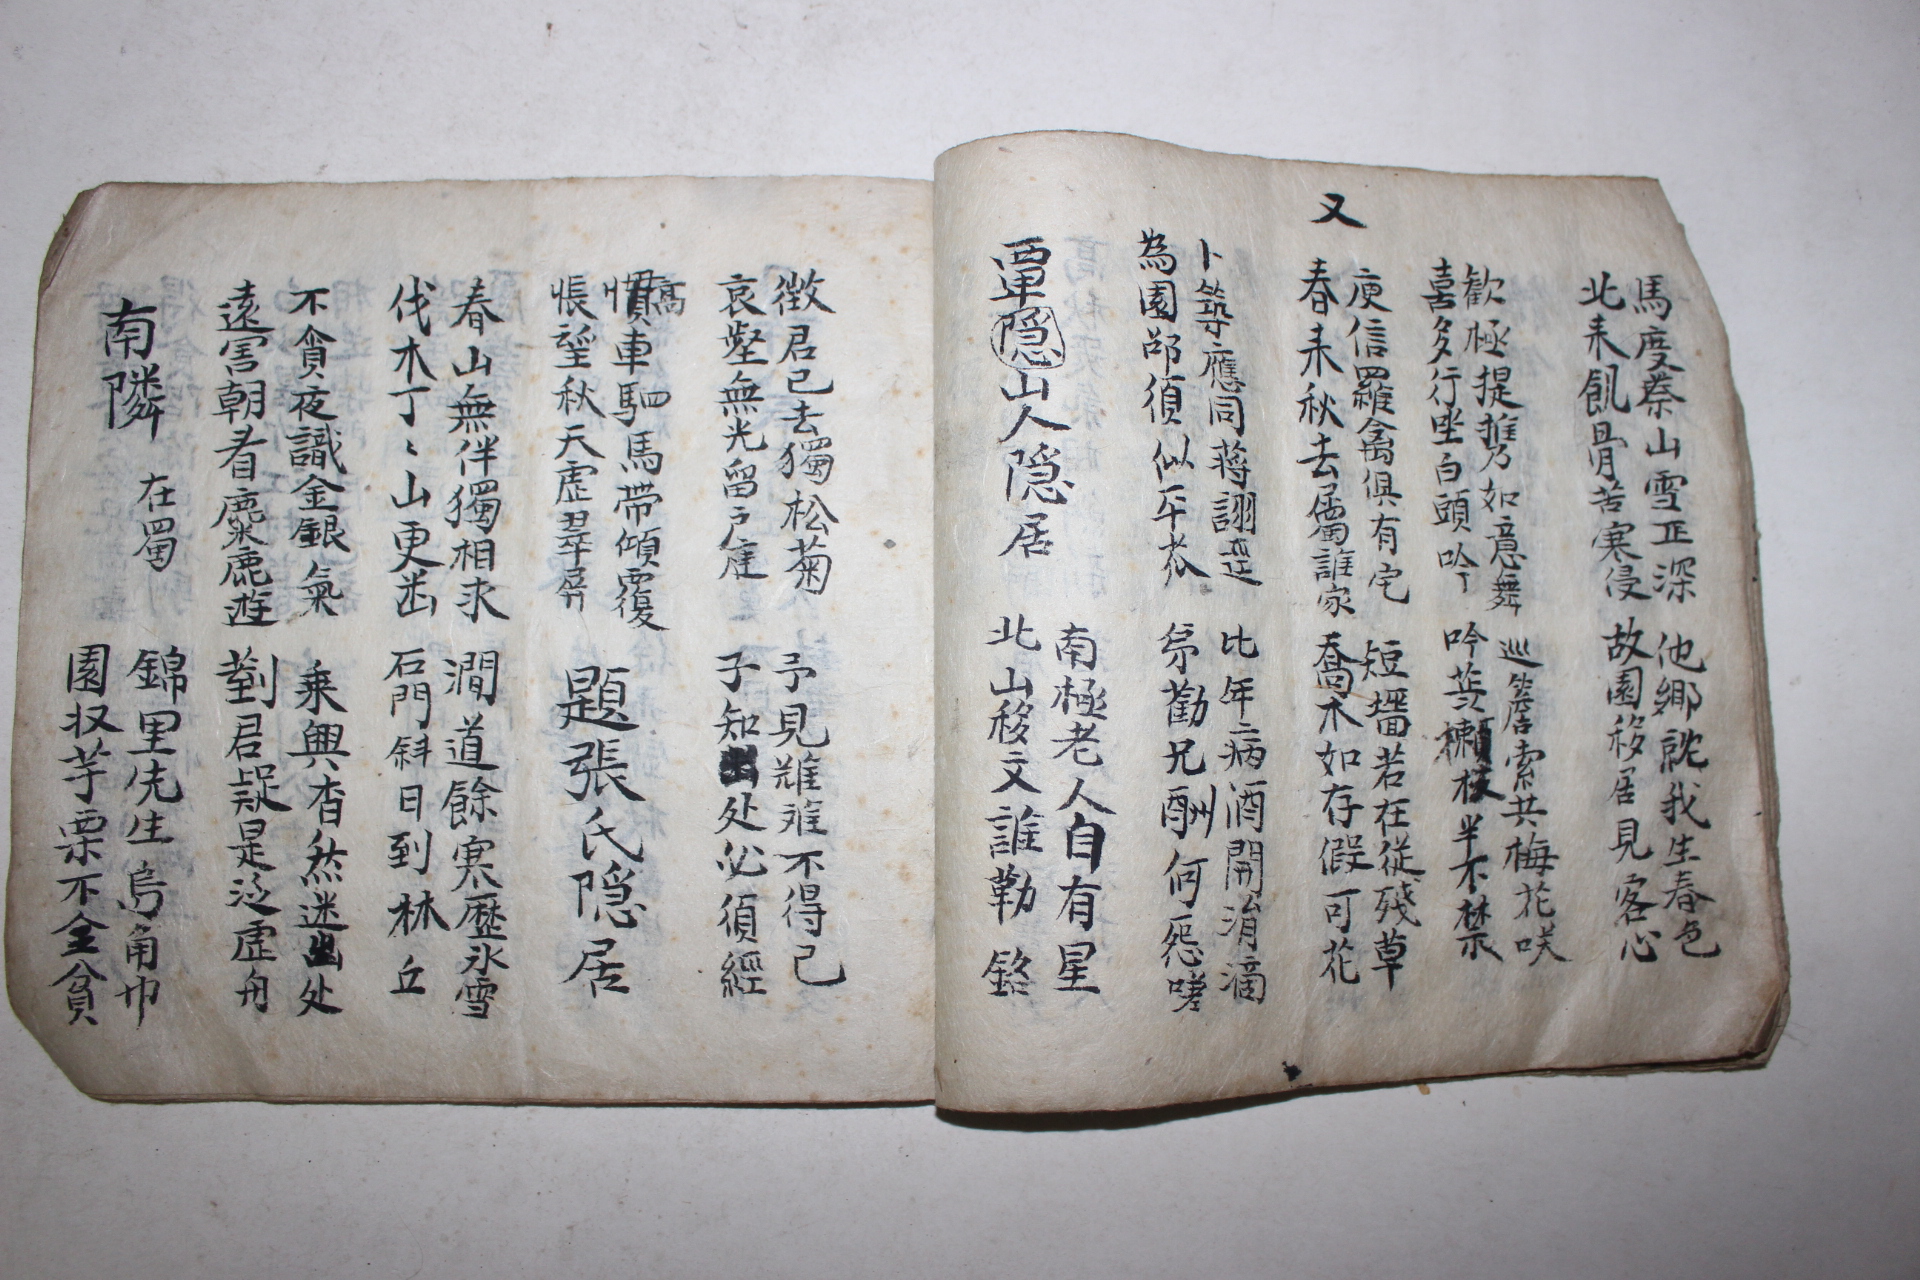 馬度蔡山雪正深 他鄉就我生春色
北来飢骨苦寒侵 故園移居見客心
歡極提攜如意舞 巡簷索共梅花咲
喜多行坐白頭吟 冷蘂踈枝半不禁
又
庾信羅含俱有宅 短墻若在從殘草
春来秋去屬誰家 喬木如存假可花
卜築應同蔣詡逕 比年病酒開涓滴
為園邵須似平苽 弟勸兄酬何怨嗟
覃隐山人隐居
南極老人自有星
北山移文誰勒銘
徴君已去獨松菊 予見難難不得已
哀壑無光留戶庭 子知出处必須經
高
慣車駟馬帶傾覆
悵望秋天虛翠屛
題張氏隐居
春山無伴獨相求 澗道餘寒歷氷雪
伐木丁〻山更幽 石門斜日到林丘
不貪夜識金銀氣 乗興杳然迷出处
遠害朝看麋鹿遊 對君疑是泛虛舟
南隣 在蜀
錦里先生烏角巾
園収芋栗不全貧